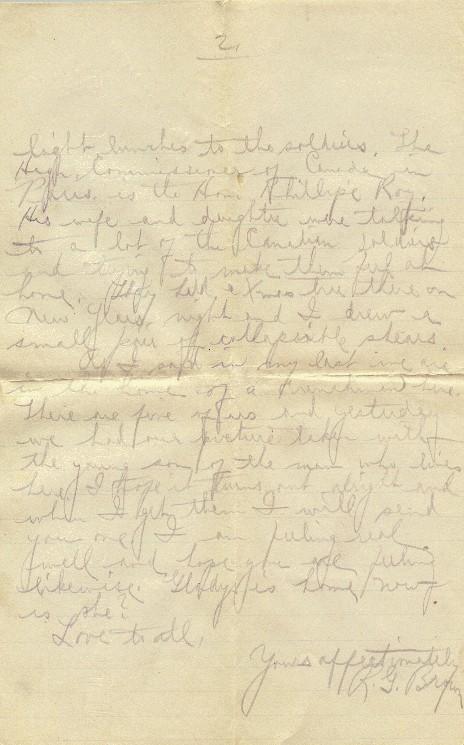 2.
light lunches to the soldiers. The
High Commissioner of Canada in
Paris is the Hon. Phillipe Roy.
His wife and daughter were talking
to a lot of the Canadian soldiers
and trying to make them feel at
home. They had a Xmas tree there on
New Years night and I drew a
small pair of collapsible shears.
As I said in my last we are
in the home of a Frenchman here.
There are five of us and yesterday
we had our picture taken with
the young son of the man who lives
here. I hope it turns out alright and
when I get them I will send
you one. I am feeling real
well and hope you are feeling
likewise. Gladys is home now
is she?
Love to all,
Yours affectionately
R. G. Brown